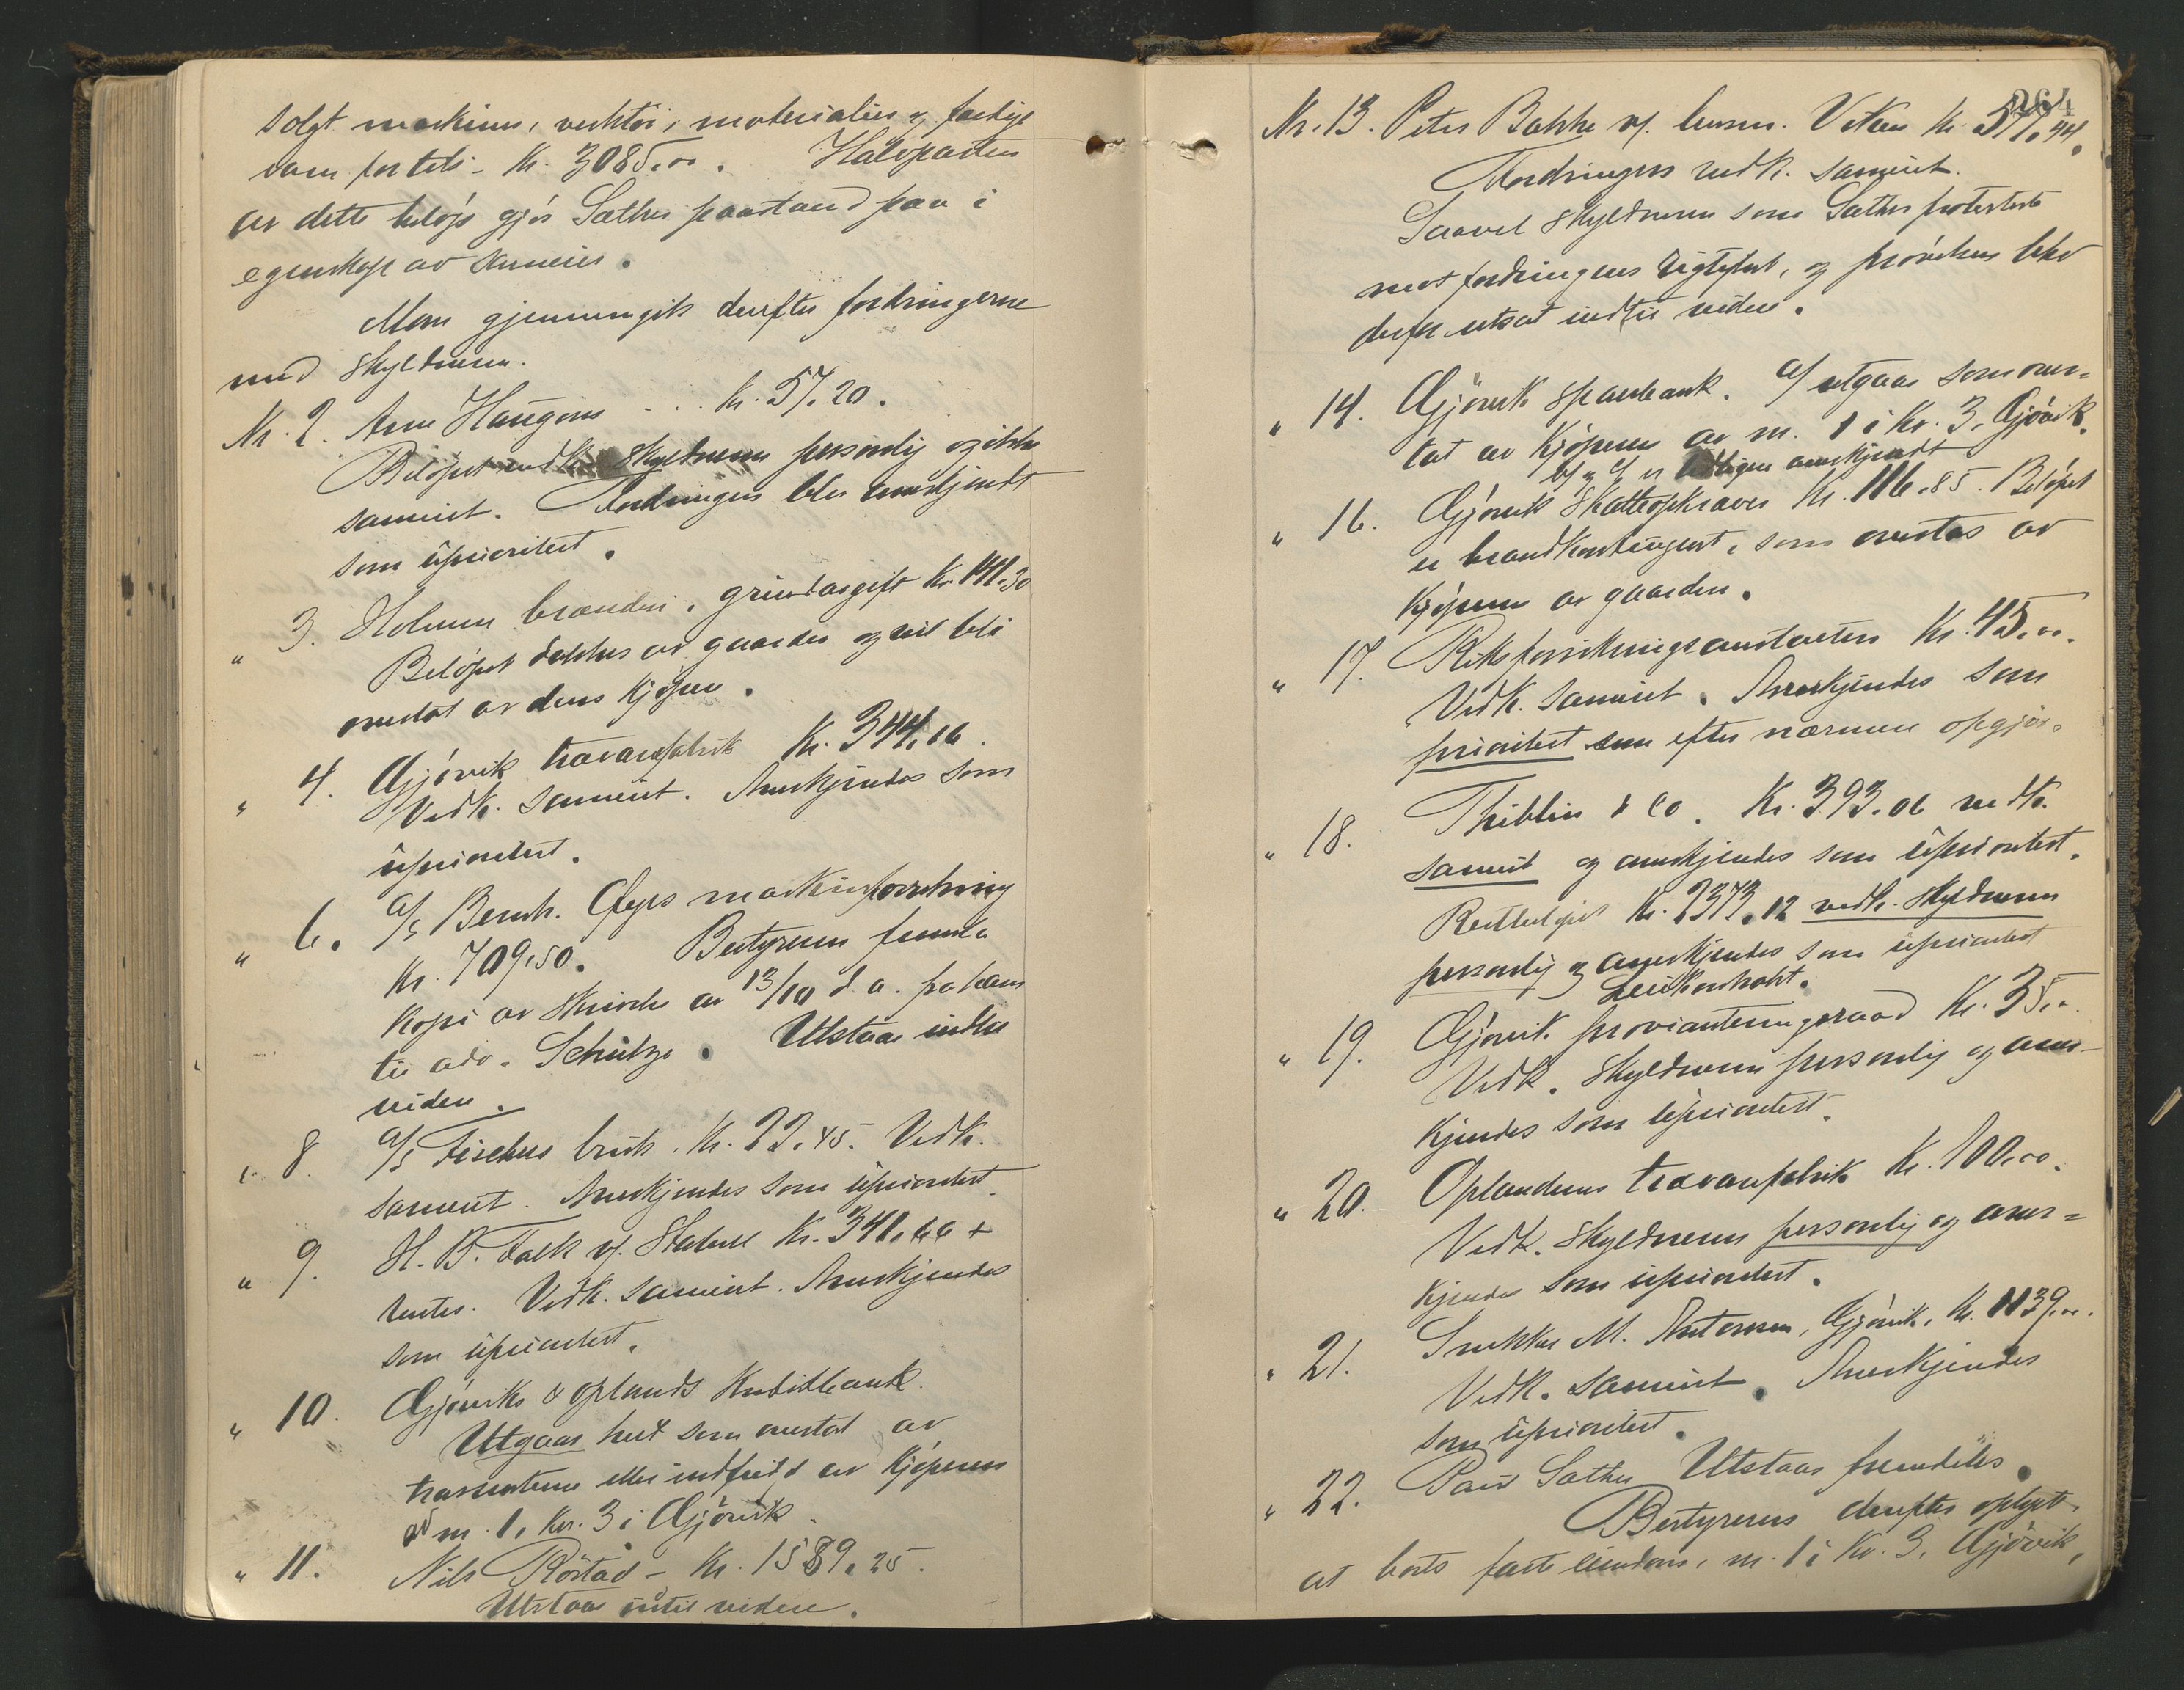 solgt maskiner, verktøi, materialier og færdige
varer for tils. - Kr. 3085.00. Halvparten
av dette beløp gjør Sæther paastand paa i
egenskap av sameier.
Man gjennemgik derefter fordringerne
med skyldneren.
Nr. 2. Arne Haugom . . . Kr. 57.20.
Beløpet vedk. skyldneren personlig og ikke
sameiet. Fordringen blev anerkjendt
som uprioritert.
" 3. Holmen brænderi, grundavgift Kr. 141.30
Beløpet dækkes av gaarden og vil bli
overtat av dens kjøper.
" 4. Gjøvik trævarefabrik Kr. 344.16.
Vedk. sameiet. Anerkjendes som
uprioritert.
" 6. A/S Bernh. Gjers maskinforretning
Kr. 709.50. Bestyreren fremla
kopi av skrivelse av 13/10 d.a. fra ham
til adv. Schütze. Utstaar indtil
videre.
" 8. A/S Fischers bruk. Kr. 22.45. Vedk.
sameiet. Anerkjendes som uprioritert.
" 9. H. B. Falk v/ Stabell Kr. 341.66 +
renter. Vedk. sameiet. Anerkjendes
som uprioritert.
" 10. Gjøviks & Oplands Kreditbank.
Utgaar helt som overtat av
trassenterne eller indfridd av kjøperen
av m. 1, Kv. 3 i Gjøvik.
" 11. Nils Røstad - Kr. 1589.25.
Utstaar indtil videre.
264
Nr. 13. Peter Bakke v/ lensm. Veten Kr. 577.44.
Fordringen vedk. sameiet.
Saavel skyldneren som Sæther protesterte
mot fordringens rigtighet, og prøvelsen blev
derfor utsat indtil videre.
" 14. Gjøvik sparebank. a/ utgaar som over-
tat av kjøperen av m. 1 i Kv. 3, Gjøvik.
b/ og c/ er tidligere anerkjendt
" 16. Gjøvik skatteopkræver Kr. 116.85. Beløpet
er brandkontingent, som overtas av
kjøperen av gaarden.
" 17. Riksforsikringsanstalten Kr. 45.00.
Vedk. sameiet. Anerkjendes som
prioritert efter nærmere opgjør.
" 18. Thiblin & Co. Kr. 393.06 vedk.
sameiet og anerkjendes som uprioritert.
Restbeløpet Kr. 2373.12 vedk. skyldneren
personlig og anerkjendes som uprioritert
" 19. Gjøvik provianteringsraad Kr. 35.00.
Vedk. skyldneren personlig og aner-
kjendes som uprioritert.
" 20. Oplandenes trævarefabrik Kr. 100.00.
Vedk. skyldneren personlig og aner-
kjendes som uprioritert.
" 21. Snekker M. Antonsen, Gjøvik, Kr. 1139.00.
Vedk. sameiet. Anerkjendes
som uprioritert.
" 22. Paul Sæther Utstaar fremdeles.
Bestyreren derefter oplyst
at boets faste eiendom, m. 1 i Kv. 3, Gjøvik,